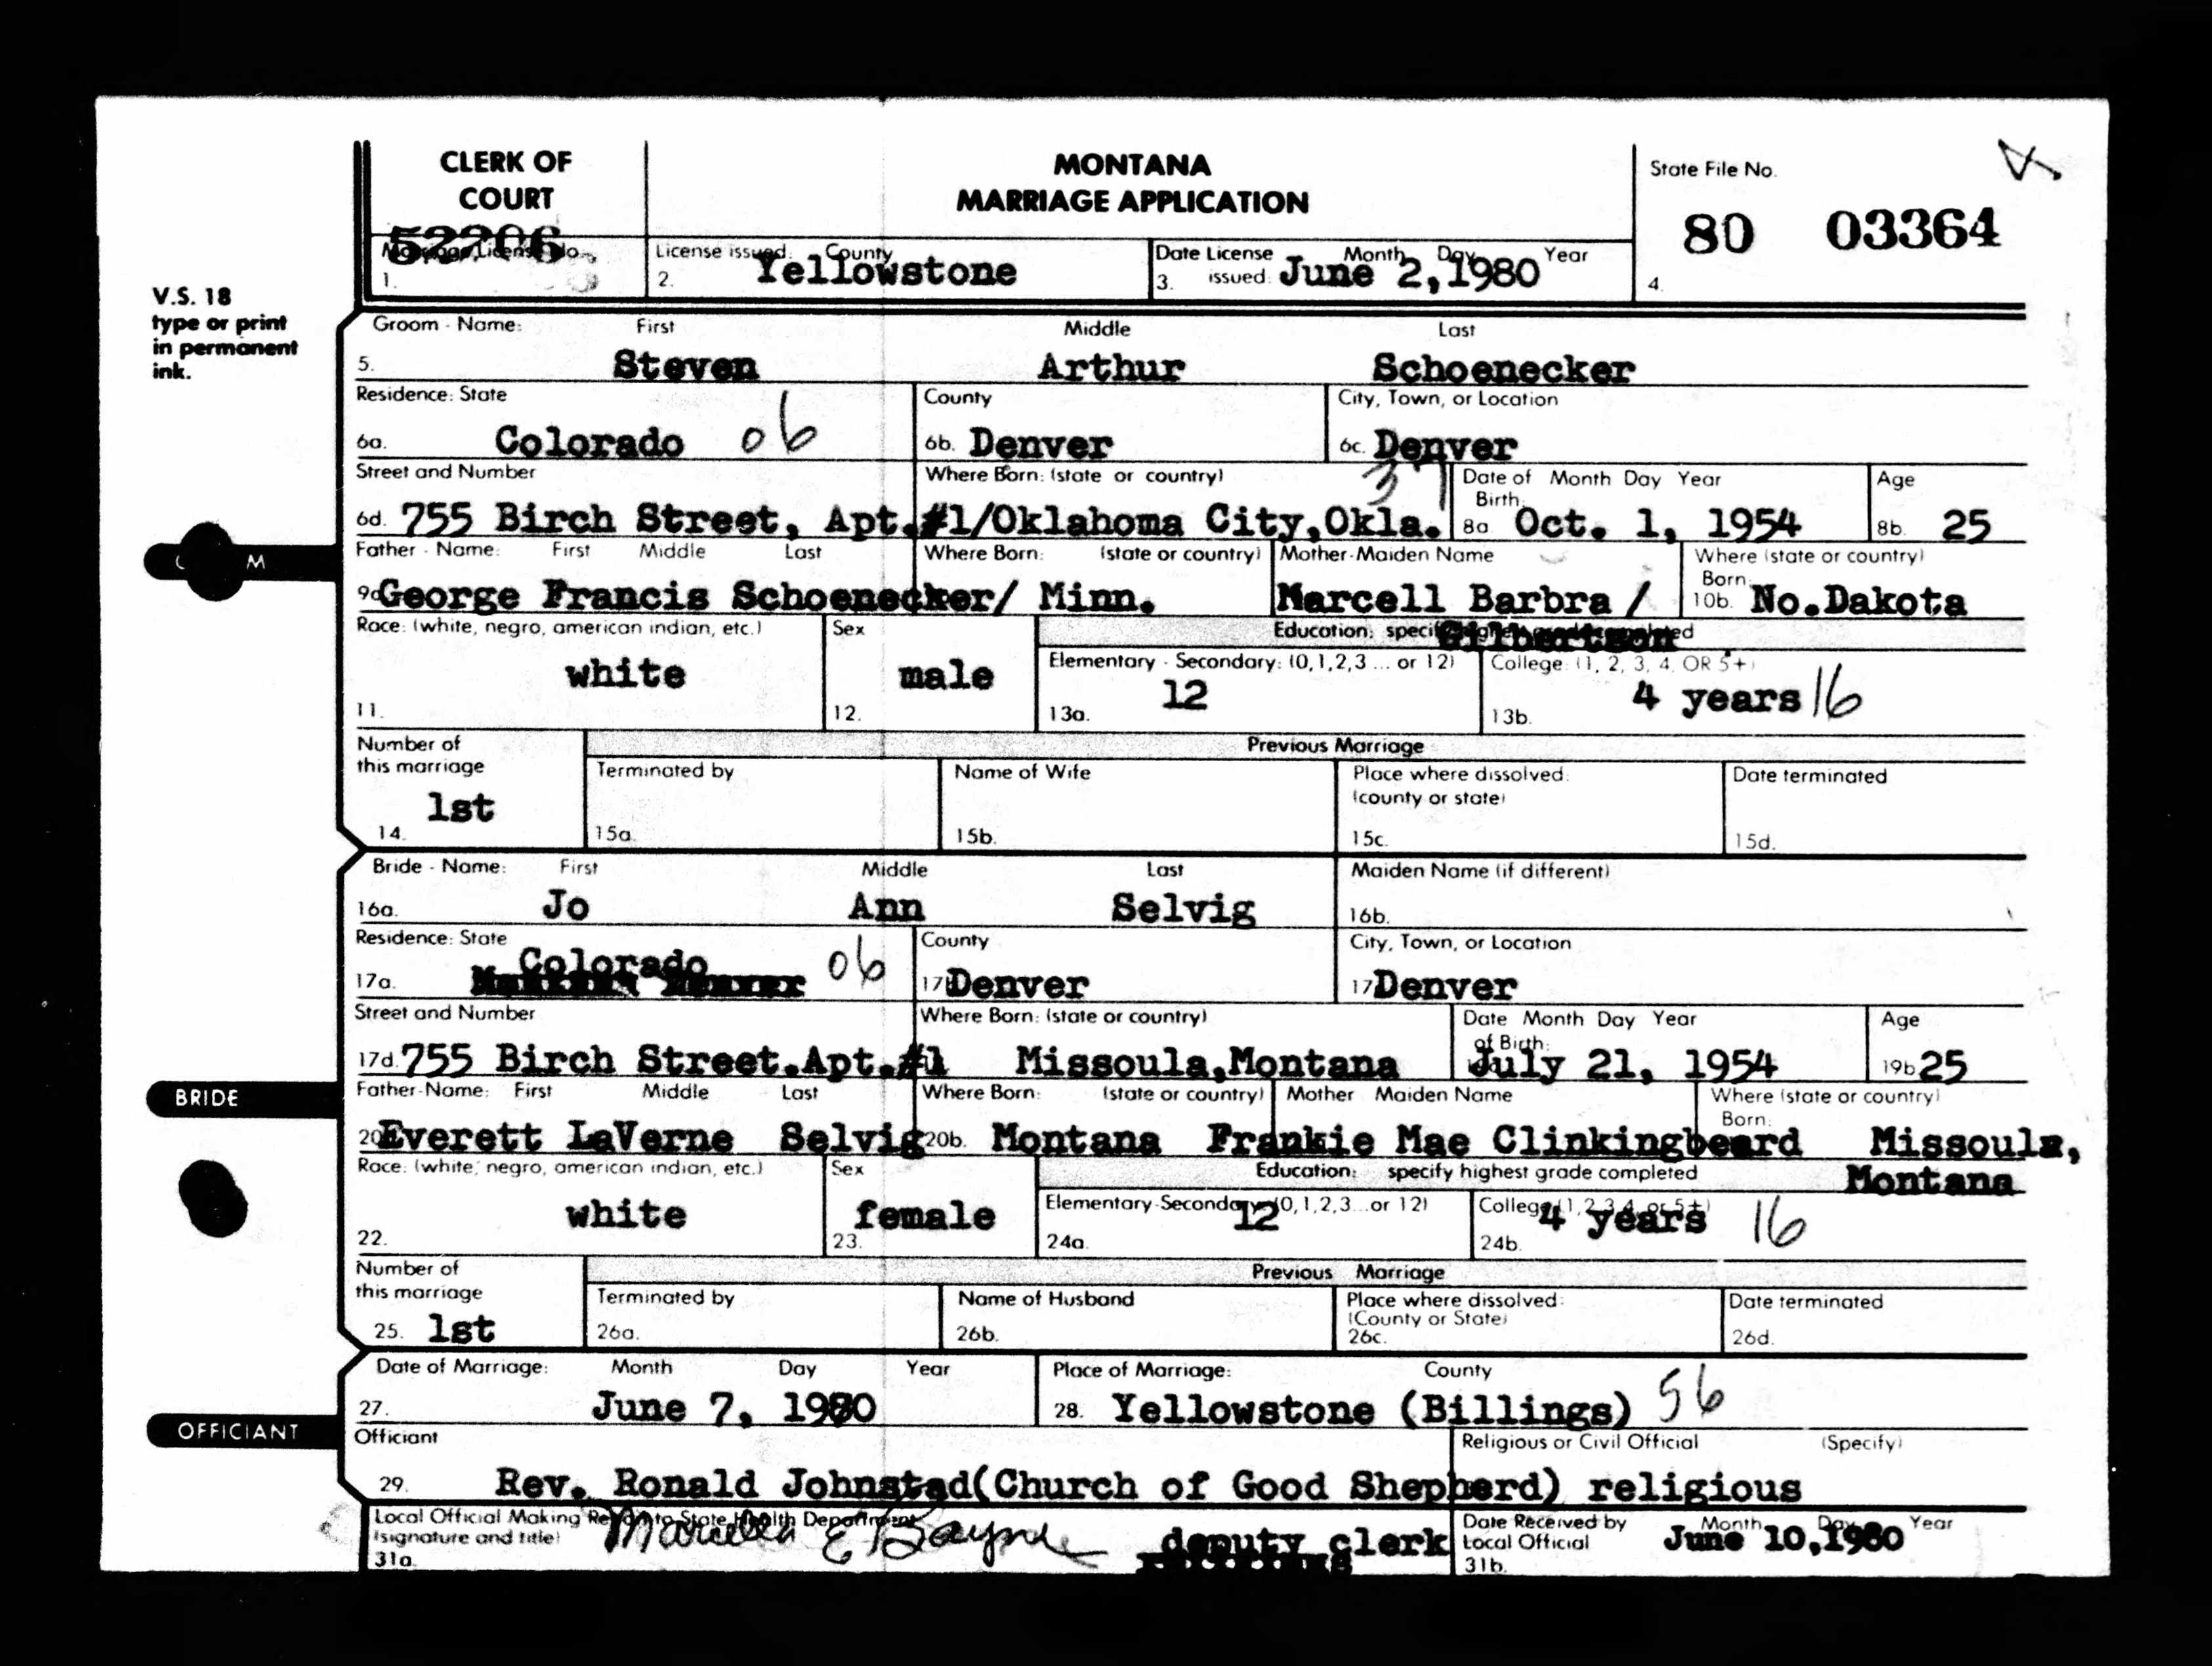 CLERK OF
COURT
MONTANA
MARRIAGE APPLICATION
State File No.
80 03364
4.
52206
Marriage License No.
1.
License issued. County
2. Yellowstone
Date License issued: Month Day Year
3. June 2, 1980
V.S. 18
type or print
in permanent
ink.
Groom - Name: First Middle Last
5. Steven Arthur Schoenecker
Residence: State County City, Town, or Location
6a. Colorado 06 6b. Denver 6c. Denver
Street and Number Where Born: (state or country) 37 Date of Birth: Month Day Year Age
6d. 755 Birch Street, Apt.#1/Oklahoma City,Okla. 8a Oct. 1, 1954 8b. 25
M
Father - Name: First Middle Last Where Born: (state or country) Mother-Maiden Name Where (state or country) Born:
9a George Francis Schoenecker/ Minn. Marcell Barbra / 10b. No.Dakota
Gilbertson
Race: (white, negro, american indian, etc.) Sex Education: specify highest grade completed
Elementary - Secondary: (0,1,2,3 ... or 12) College: (1, 2, 3, 4, OR 5+)
11. white 12. male 13a. 12 13b. 4 years 16
Number of this marriage Previous Marriage
Terminated by Name of Wife Place where dissolved: (county or state) Date terminated
14. 1st 15a. 15b. 15c. 15d.
Bride - Name: First Middle Last Maiden Name (if different)
16a. Jo Ann Selvig 16b.
Residence: State County City, Town, or Location
17a. Colorado 06 17 Denver 17 Denver
Street and Number Where Born: (state or country) Date of Birth: Month Day Year Age
17d. 755 Birch Street.Apt.#1 Missoula,Montana July 21, 1954 19b 25
BRIDE
Father-Name: First Middle Last Where Born: (state or country) Mother Maiden Name Where (state or country) Born:
20 Everett LaVerne Selvig 20b. Montana Frankie Mae Clinkingbeard Missoula,
Montana
Race: (white, negro, american indian, etc.) Sex Education: specify highest grade completed
Elementary-Secondary (0,1,2,3...or 12) College (1,2,3,4, or 5+)
22. white 23. female 24a. 12 24b. 4 years 16
Number of this marriage Previous Marriage
Terminated by Name of Husband Place where dissolved: (County or State) Date terminated
25. 1st 26a. 26b. 26c. 26d.
Date of Marriage: Month Day Year Place of Marriage: County
27. June 7, 1980 28. Yellowstone (Billings) 56
OFFICIANT
Officiant Religious or Civil Official (Specify)
29. Rev. Ronald Johnstad(Church of Good Shepherd) religious
Local Official Making Report to State Health Department
(signature and title)
31a. E Bayne deputy clerk
Date Received by Local Official Month Day Year
31b. June 10,1980